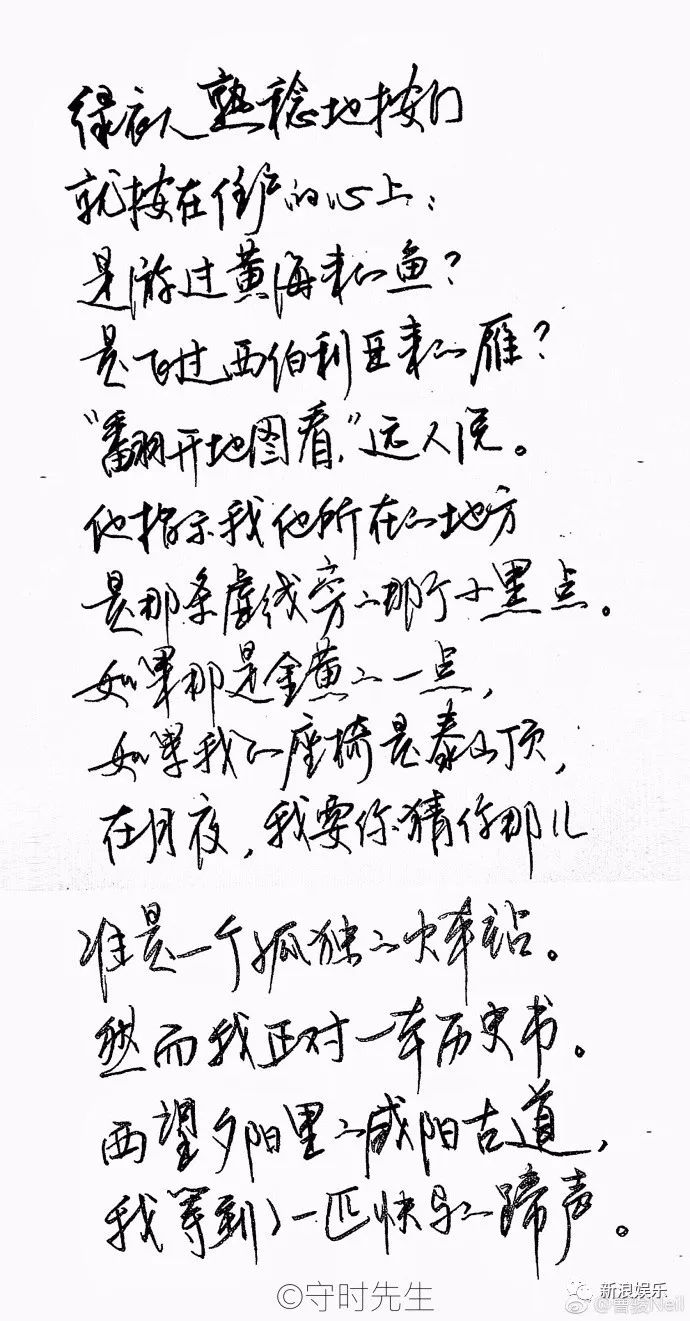 绿衣人熟稔地按门
就按在住户的心上:
是游过黄海来的鱼?
是飞过西伯利亚来的雁?
“翻开地图看,”远人说。
他指示我他所在的地方
是那条虚线旁的那个小黑点。
如果那是金黄的一点,
如果我的座椅是泰山顶,
在月夜,我要你猜你那儿
准是一个孤独的火车站。
然而我正对一本历史书。
西望夕阳里的咸阳古道,
我等到了一匹快马的蹄声。
©守时先生
新浪娱乐
@曾骏Neil